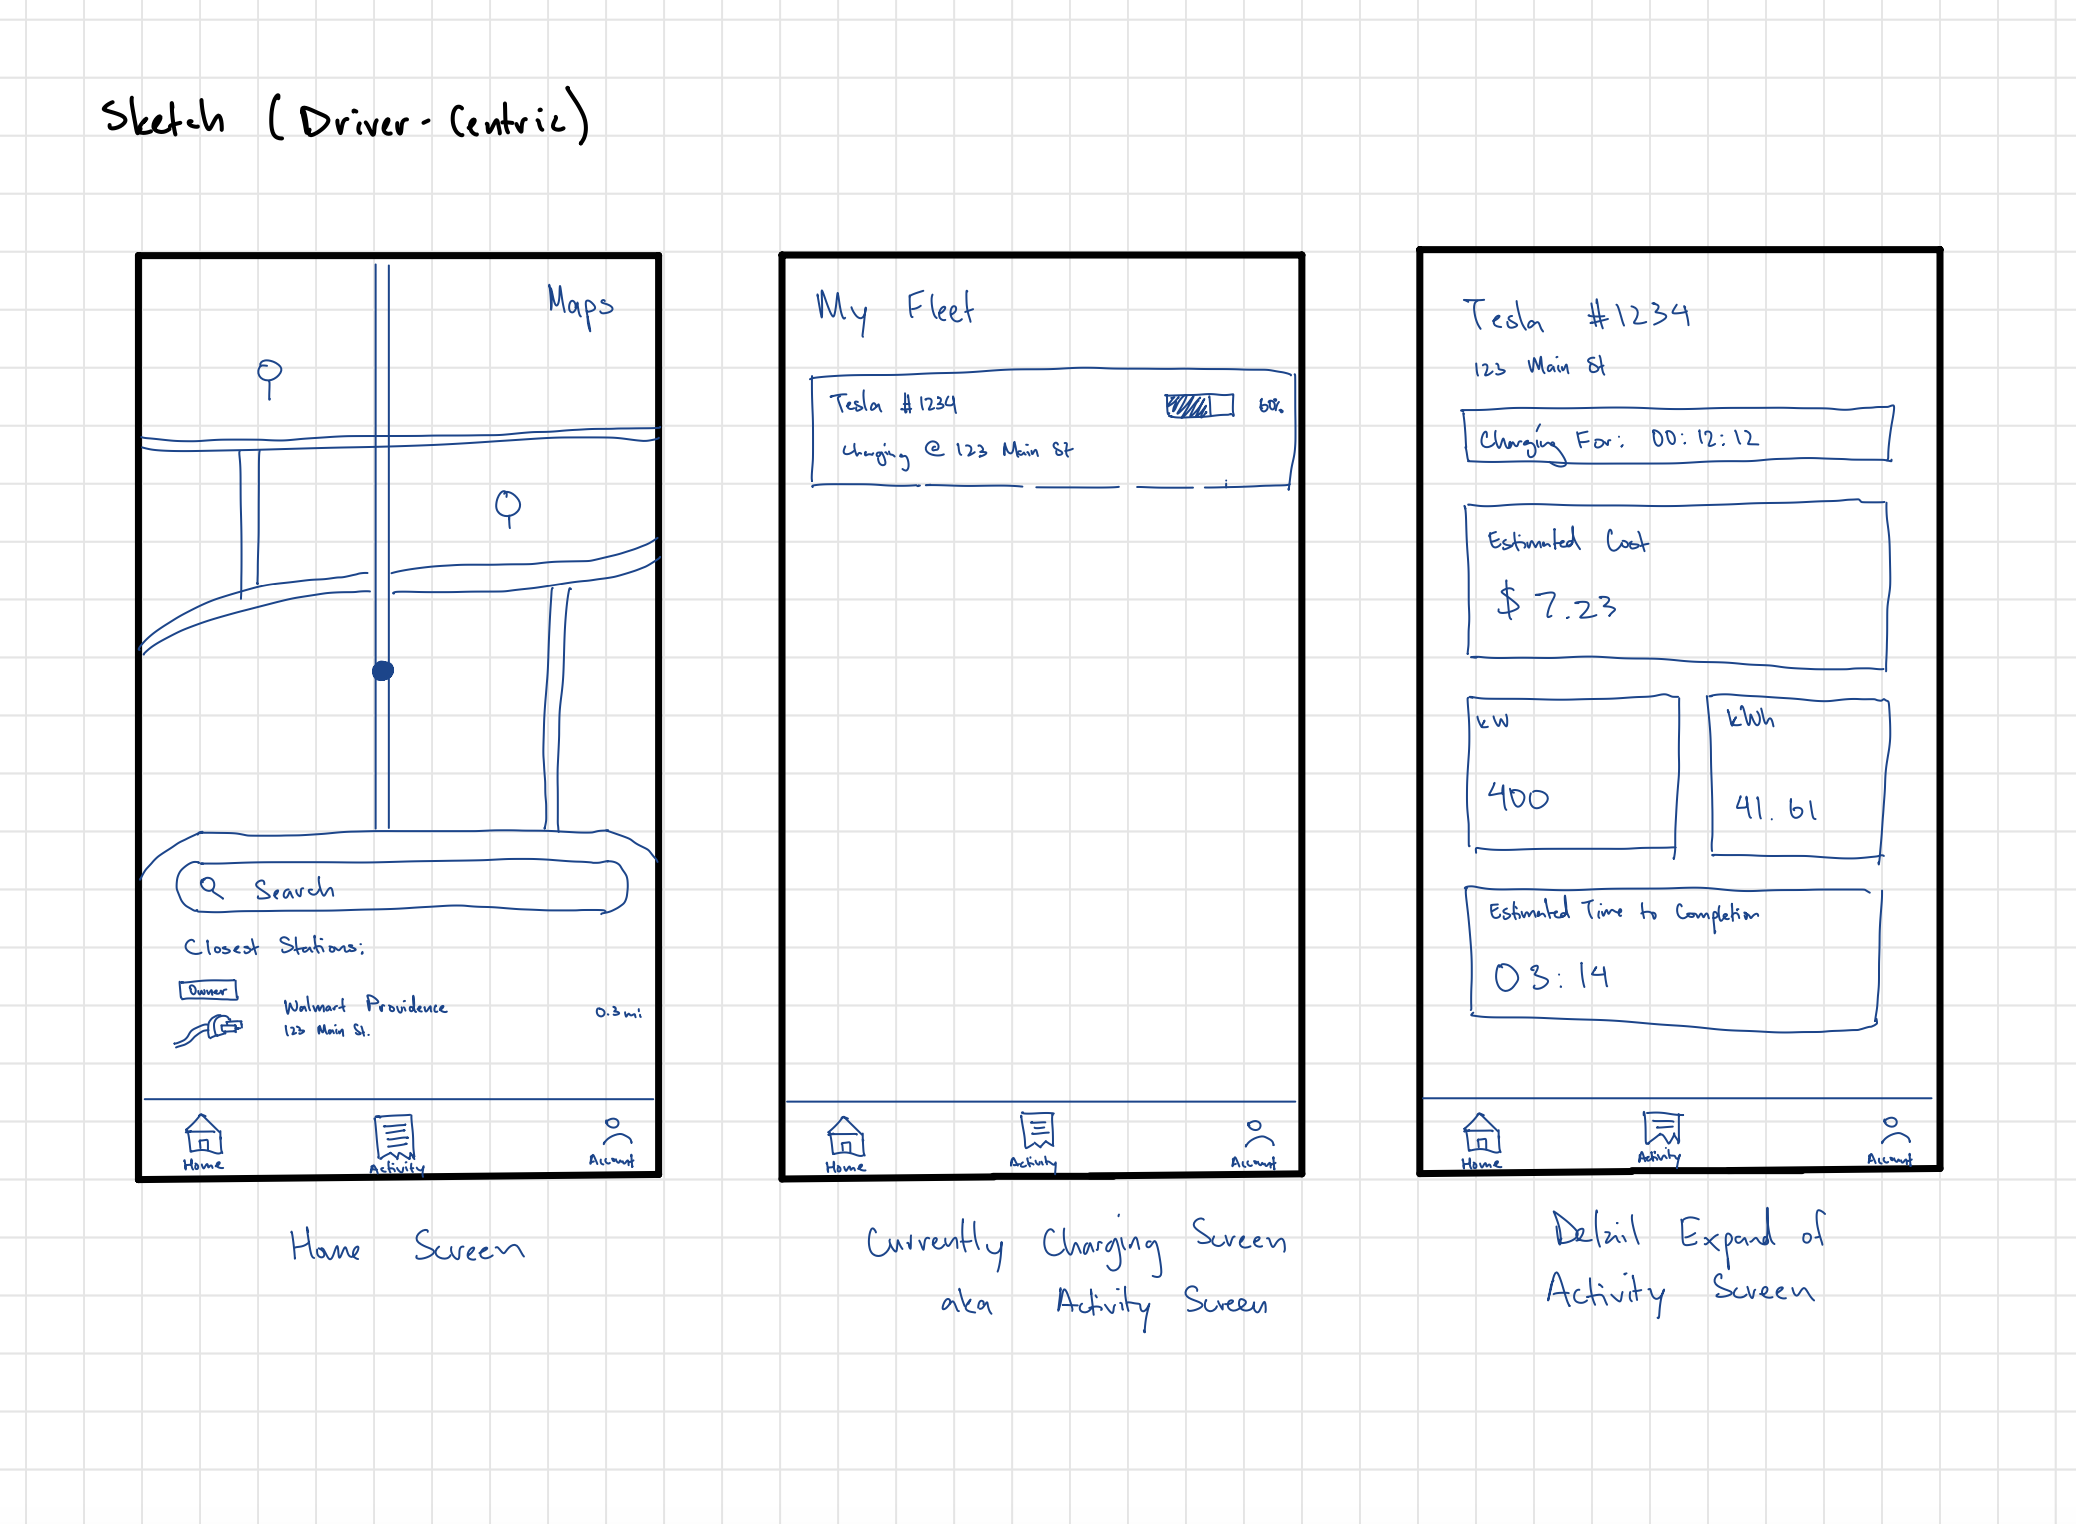 Sketch (Driver-Centric)
Maps
Search
Closest Stations:
Owner
Walmart Providence
123 Main St.
0.3 mi
Home
Activity
Account
Home Screen
My Fleet
Tesla #1234
60%
Charging @ 123 Main St
Home
Activity
Account
Currently Charging Screen
aka Activity Screen
Tesla #1234
123 Main St
Charging For: 00:12:12
Estimated Cost
$7.23
kW
400
kWh
41.61
Estimated Time to Completion
03:14
Home
Activity
Account
Detail Expand of
Activity Screen